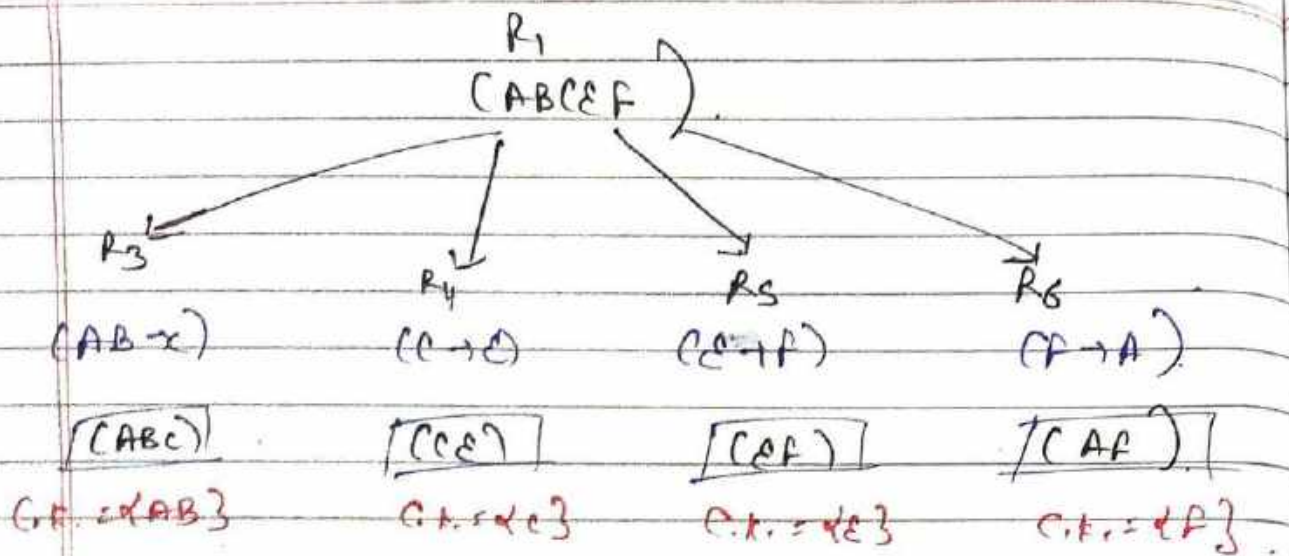 R1
(ABCEF)
R3 R4 R5 R6
(AB→C) (C→E) (E→F) (F→A)
(ABC) (CE) (EF) (AF)
C.K. = {AB} C.K. = {C} C.K. = {E} C.K. = {F}